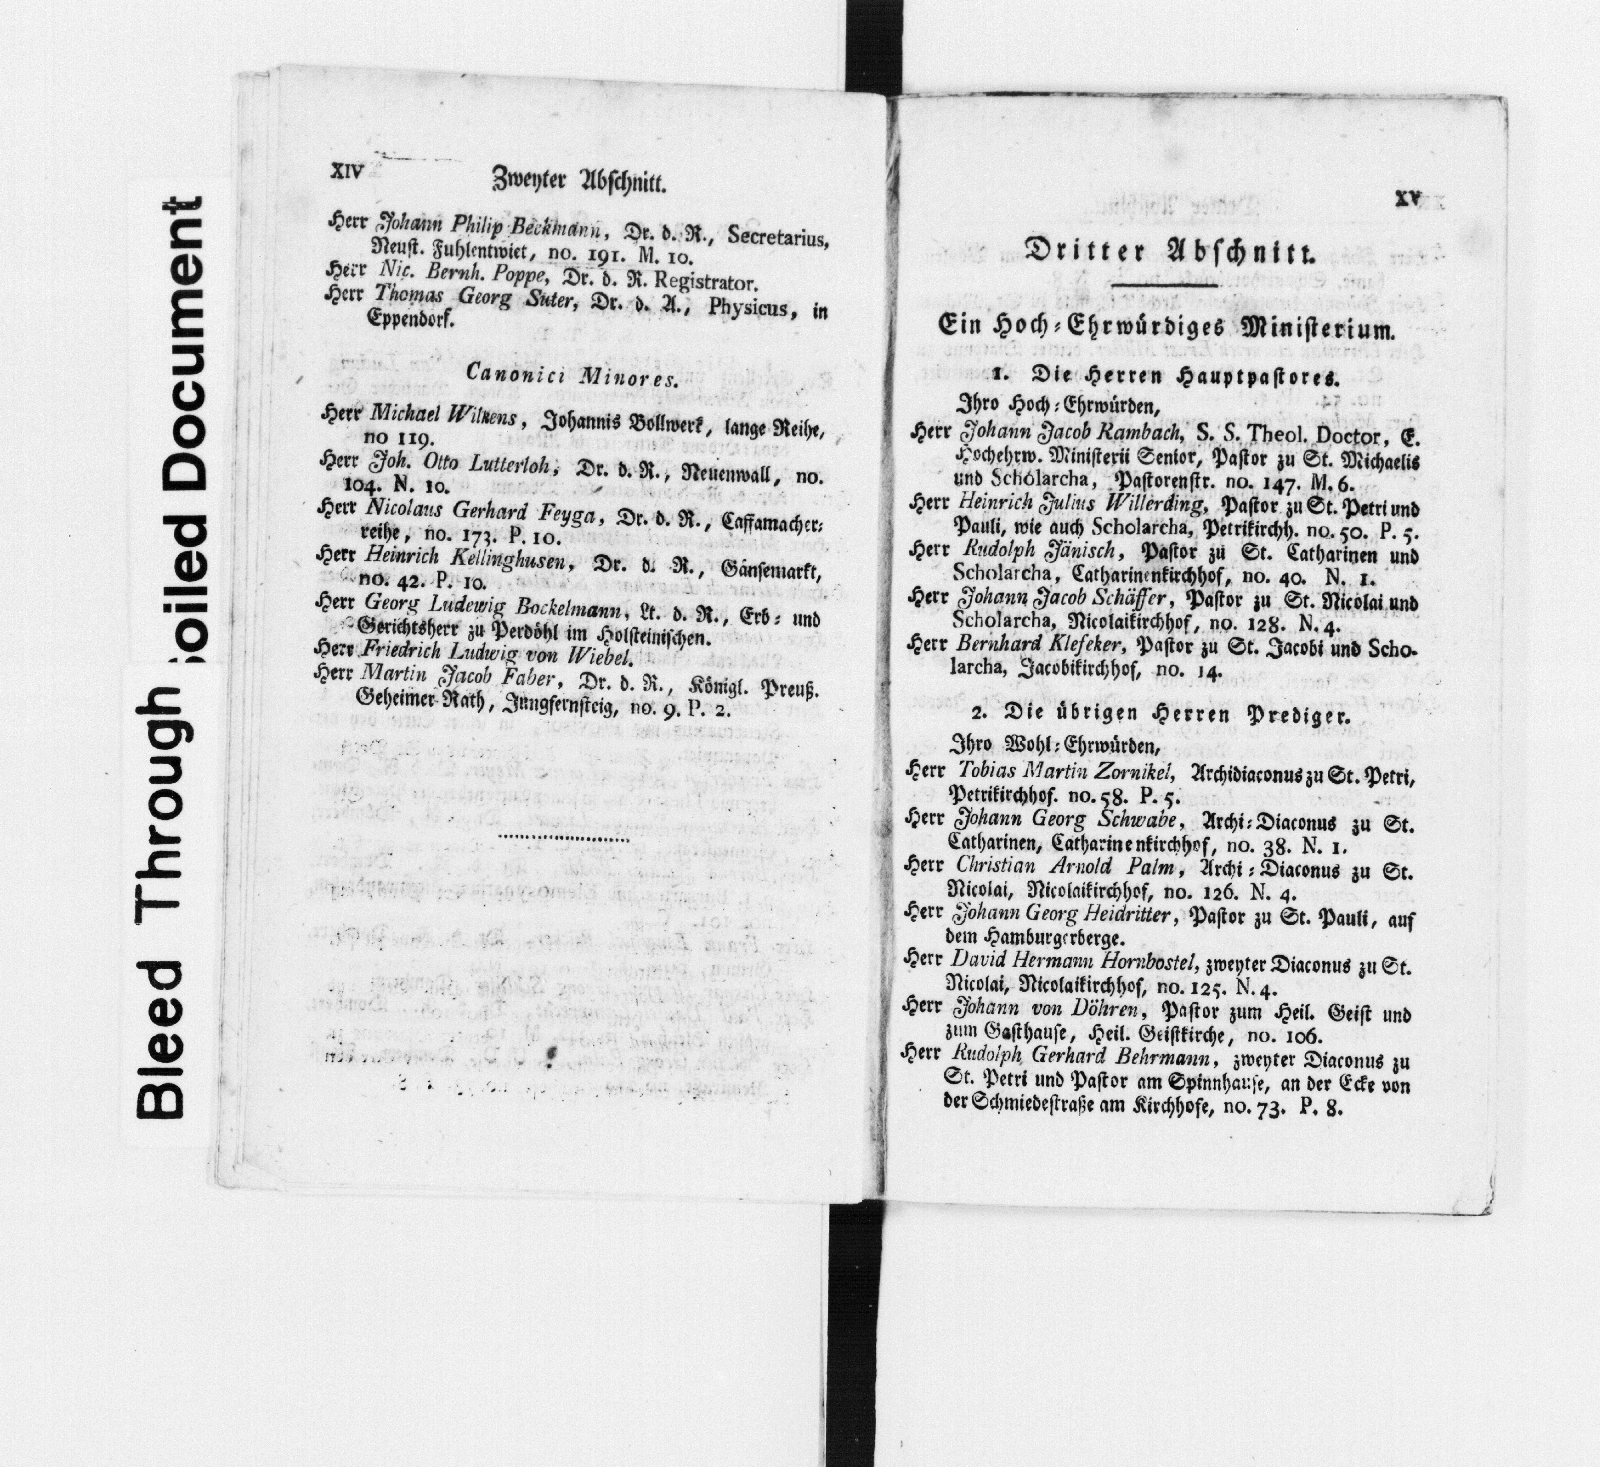 Bleed Through
Soiled Document
XIV
Zweyter Abschnitt.
Herr Johann Philip Beckmann, Dr. d. R., Secretarius,
Neust. Fuhlentwiet, no. 191. M. 10.
Herr Nic. Bernh. Poppe, Dr. d. R. Registrator.
Herr Thomas Georg Suter, Dr. d. A., Physicus, in
Eppendorf.
Canonici Minores.
Herr Michael Wilkens, Johannis Bollwerk, lange Reihe,
no 119.
Herr Joh. Otto Lutterloh, Dr. d. R., Neuenwall, no.
104. N. 10.
Herr Nicolaus Gerhard Feyga, Dr. d. R., Caffamacher-
reihe, no. 173. P. 10.
Herr Heinrich Kellinghusen, Dr. d. R., Gänsemarkt,
no. 42. P. 10.
Herr Georg Ludewig Bockelmann, Lt. d. R., Erb- und
Gerichtsherr zu Perdöhl im Holsteinischen.
Herr Friedrich Ludwig von Wiebel.
Herr Martin Jacob Faber, Dr. d. R., Königl. Preuß.
Geheimer Rath, Jungfernsteig, no. 9. P. 2.
XV
Dritter Abschnitt.
Ein Hoch-Ehrwürdiges Ministerium.
1. Die Herren Hauptpastores.
Ihro Hoch-Ehrwürden,
Herr Johann Jacob Rambach, S. S. Theol. Doctor, E.
Hochehrw. Ministerii Senior, Pastor zu St. Michaelis
und Scholarcha, Pastorenstr. no. 147. M. 6.
Herr Heinrich Julius Willerding, Pastor zu St. Petri und
Pauli, wie auch Scholarcha, Petrikirchh. no. 50. P. 5.
Herr Rudolph Jänisch, Pastor zu St. Catharinen und
Scholarcha, Catharinenkirchhof, no. 40. N. 1.
Herr Johann Jacob Schäffer, Pastor zu St. Nicolai und
Scholarcha, Nicolaikirchhof, no. 128. N. 4.
Herr Bernhard Klefeker, Pastor zu St. Jacobi und Scho-
larcha, Jacobikirchhof, no. 14.
2. Die übrigen Herren Prediger.
Ihro Wohl-Ehrwürden,
Herr Tobias Martin Zornikel, Archidiaconus zu St. Petri,
Petrikirchhof. no. 58. P. 5.
Herr Johann Georg Schwabe, Archi-Diaconus zu St.
Catharinen, Catharinenkirchhof, no. 38. N. 1.
Herr Christian Arnold Palm, Archi-Diaconus zu St.
Nicolai, Nicolaikirchhof, no. 126. N. 4.
Herr Johann Georg Heidritter, Pastor zu St. Pauli, auf
dem Hamburgerberge.
Herr David Hermann Hornbostel, zweyter Diaconus zu St.
Nicolai, Nicolaikirchhof, no. 125. N. 4.
Herr Johann von Döhren, Pastor zum Heil. Geist und
zum Gasthause, Heil. Geistkirche, no. 106.
Herr Rudolph Gerhard Behrmann, zweyter Diaconus zu
St. Petri und Pastor am Spinnhause, an der Ecke von
der Schmiedestraße am Kirchhofe, no. 73. P. 8.